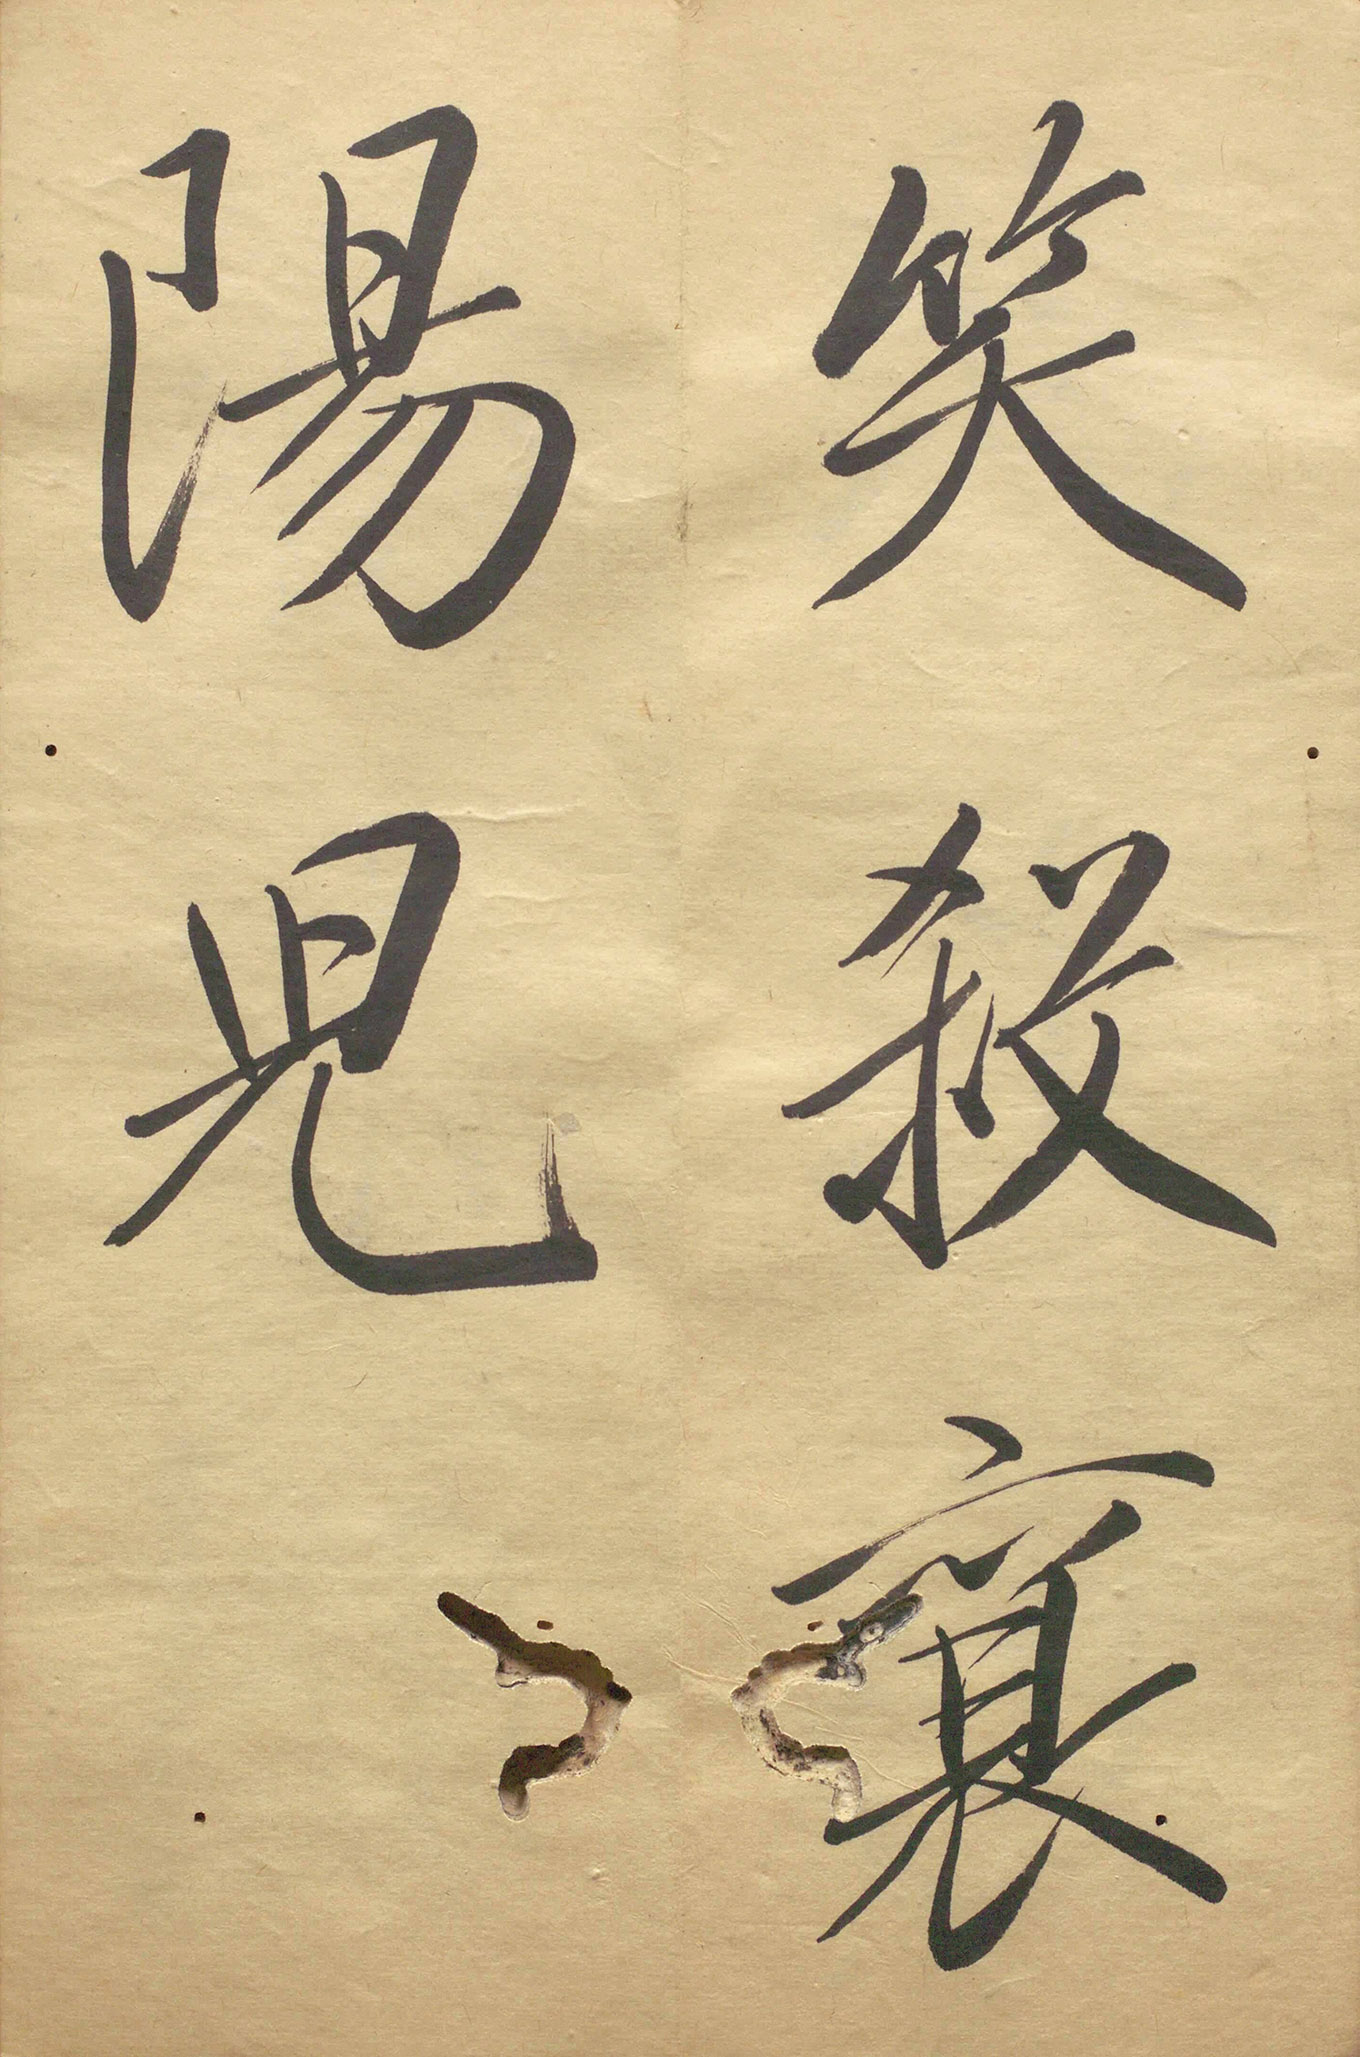 笑殺襄
陽兒